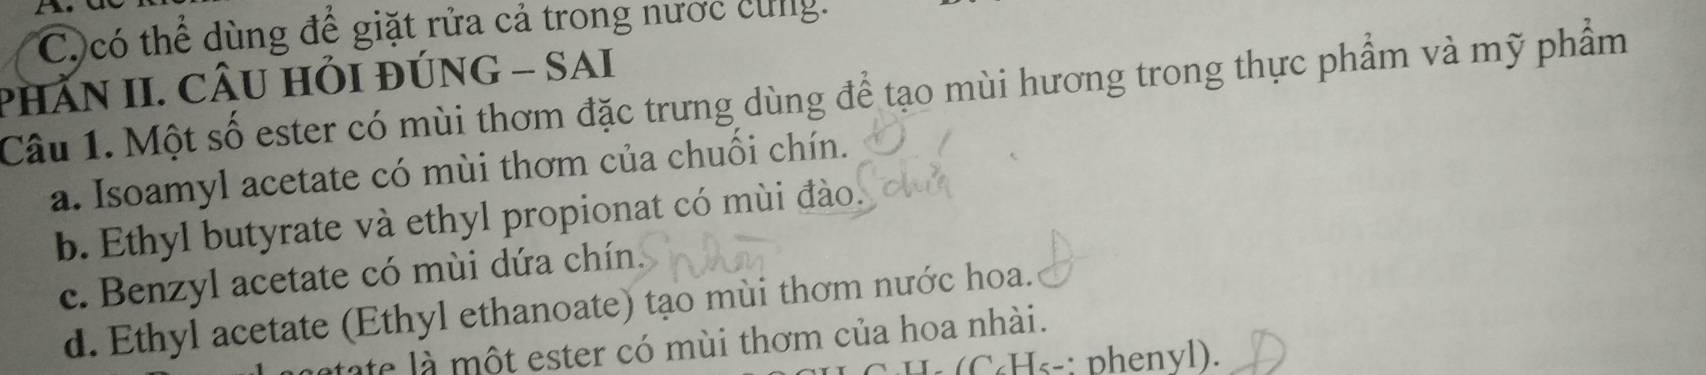 C. có thể dùng để giặt rửa cả trong nước cứng.
PHẦN II. CÂU HỎI ĐÚNG – SAI
Câu 1. Một số ester có mùi thơm đặc trưng dùng để tạo mùi hương trong thực phẩm và mỹ phẩm
a. Isoamyl acetate có mùi thơm của chuối chín. Đ
b. Ethyl butyrate và ethyl propionat có mùi đào. S
c. Benzyl acetate có mùi dứa chín. S
d. Ethyl acetate (Ethyl ethanoate) tạo mùi thơm nước hoa. Đ
là một ester có mùi thơm của hoa nhài.
(C₆H₅-: phenyl). Đ